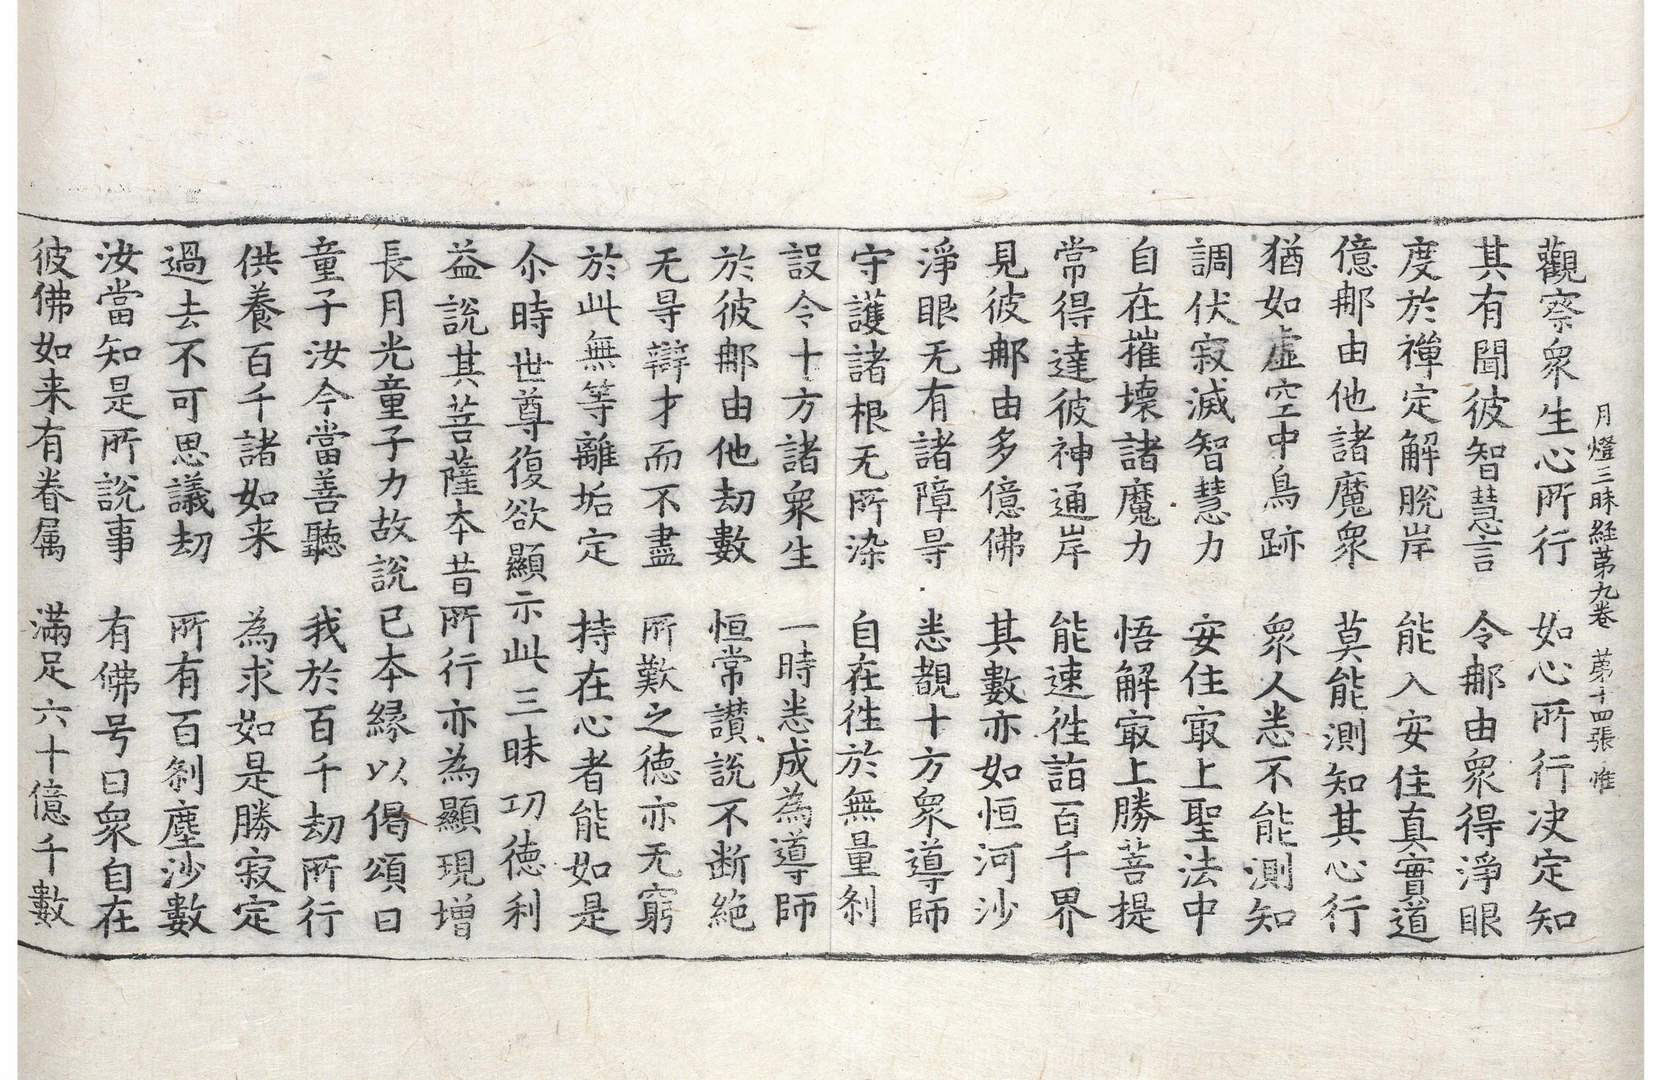 月燈三昧経苐九卷　苐十四張　惟
觀察衆生心所行　如心所行决定知
其有聞彼智慧言　令䣈由衆得淨眼
度於禪定解脫岸　能入安住真實道
億䣈由他諸魔衆　莫能測知其心行
猶如虛空中鳥跡　衆人悉不能測知
調伏寂滅智慧力　安住㝡上聖法中
自在摧壞諸魔力　悟解㝡上勝菩提
常得達彼神通岸　能速徃詣百千界
見彼䣈由多億佛　其數亦如恒河沙
淨眼无有諸障㝵　悉覩十方衆導師
守護諸根无所染　自在徃於無量剎
設令十方諸衆生　一時悉成為導師
於彼䣈由他劫數　恒常讃說不断絶
无㝵辯才而不盡　所歎之德亦无窮
於此無等離垢定　持在心者能如是
尒時世尊復欲顯示此三昧功德利
益說其菩薩本昔所行亦為顯現增
長月光童子力故說已本縁以偈頌曰
童子汝今當善聽　我於百千劫所行
供養百千諸如来　為求如是勝寂定
過去不可思議劫　所有百剎塵沙數
汝當知是所說事　有佛号曰衆自在
彼佛如来有眷属　滿足六十億千數